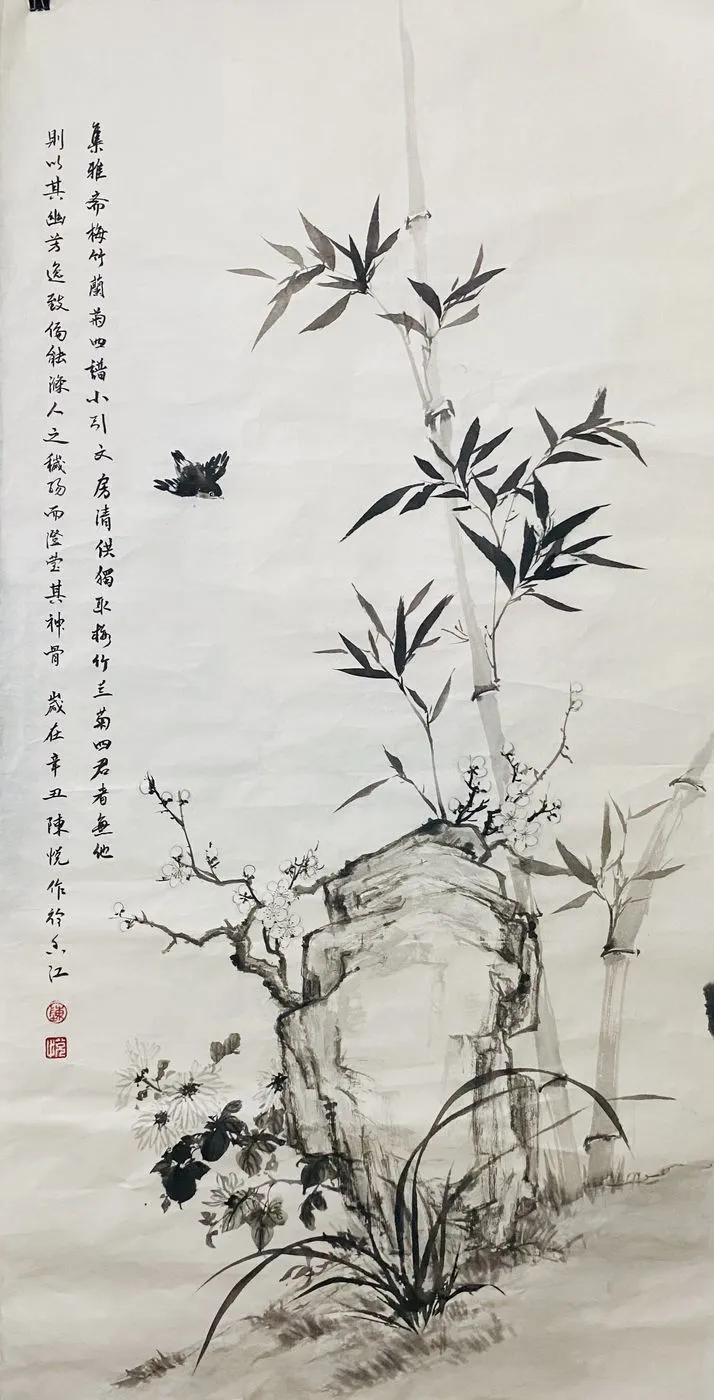 集雅斋梅竹蘭菊四譜小引文房清供獨取梅竹兰菊四君者無他
則以其幽芳逸致偏能滌人之穢腸而澄莹其神骨 歲在辛丑 陳悦作於香江
陳
悦